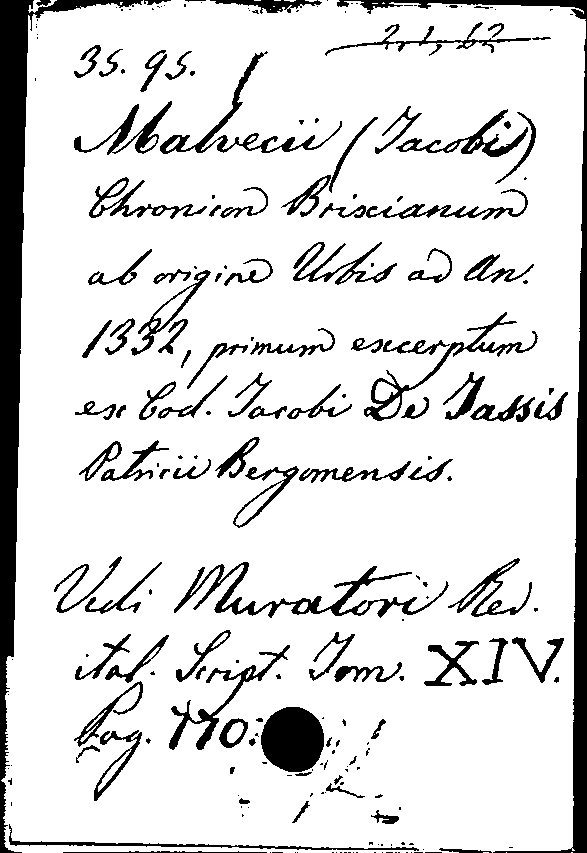 35. 95.
Malvecii (Jacobi)
Chronicon Brixianum
ab origine Urbis ad An.
1332, primum excerptum
ex Cod. Jacobi De Tassis
Patricii Bergomensis.
Vedi Muratori Rer.
ital. Script. Tom. XIV.
Pag. 770.